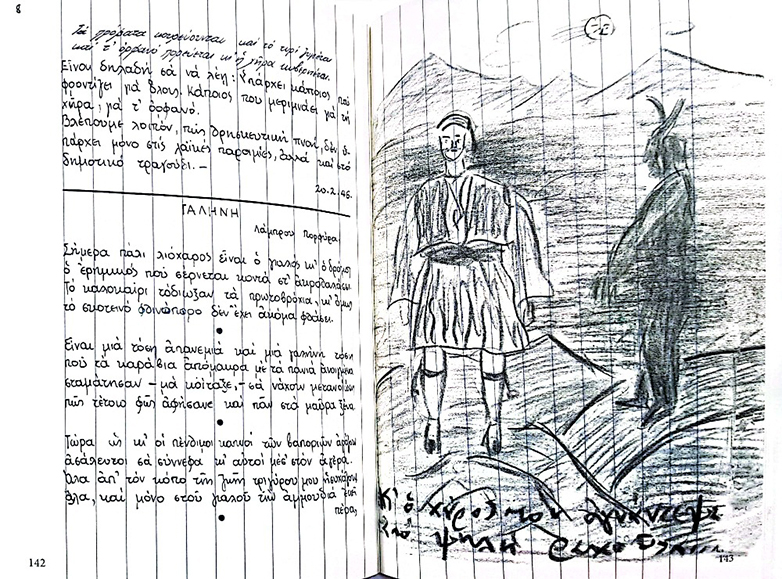 Τὰ πρόβατα κουρεύονται καὶ τὸ τυρὶ
καὶ τ' ὀρφανὸ πορεύεται κι' ἡ χήρα κυβερνιέται.
Εἶναι δηλαδὴ σὰ νὰ λέῃ: Ὑπάρχει κάποιος ποὺ
φροντίζει γιὰ ὅλους. Κάποιος που μεριμνάει γιὰ τὴ
χήρα, γιὰ τ' ὀρφανό.
Βλέπουμε λοιπόν, πὼς θρησκευτικὴ πνοή, δὲν ὑ-
πάρχει μόνο στὶς λαϊκὲς παροιμίες, ἀλλὰ καὶ στὸ
δημοτικὸ τραγούδι. –
20.2.46.
ΓΑΛΗΝΗ
Λάμπρου Πορφύρα
Σήμερα πάλι λιόχαρος εἶναι ὁ γιαλὸς κι' ὁ δρόμος
ὁ ἐρημικὸς ποὺ σέρνεται κοντὰ στ' ἀκροθαλάσσι
Τὸ καλοκαίρι τὄδιωξαν τὰ πρωτοβρόχια, κι' ὅμως
τὸ σκοτεινὸ φθινόπωρο δὲν ἔχει ἀκόμα φθάσει.
Εἶναι μιὰ τόση ἀπανεμιὰ καὶ μιὰ γαλήνη τόση
ποὺ τὰ καράβια ἀπόμακρα μὲ τὰ πανιὰ ἀνοιγμένα
σταμάτησαν – γιὰ κοίταξε, – σὰ νἄχουν μετανοιώσει
πὼς τέτοιο φῶς ἀφήσανε καὶ πᾶν στὰ μαῦρα ξένα.
Τώρα ὡς κι' οἱ πένθιμοι καπνοὶ τῶν βαποριῶν
ἀσάλευτοι σὰ σύννεφα κι' αὐτοὶ μὲς στὸν ἀγέρα.
Ὅλα ἀπ' τὸν κόπο τῆς ζωῆς τριγύρου μου ἡσυχάζουν
ὅλα, καὶ μόνο στοῦ γιαλοῦ τὴν ἀμμουδιὰ ἐκεῖ
πέρα,
142
Κι' ὁ χάρος τὸν
143